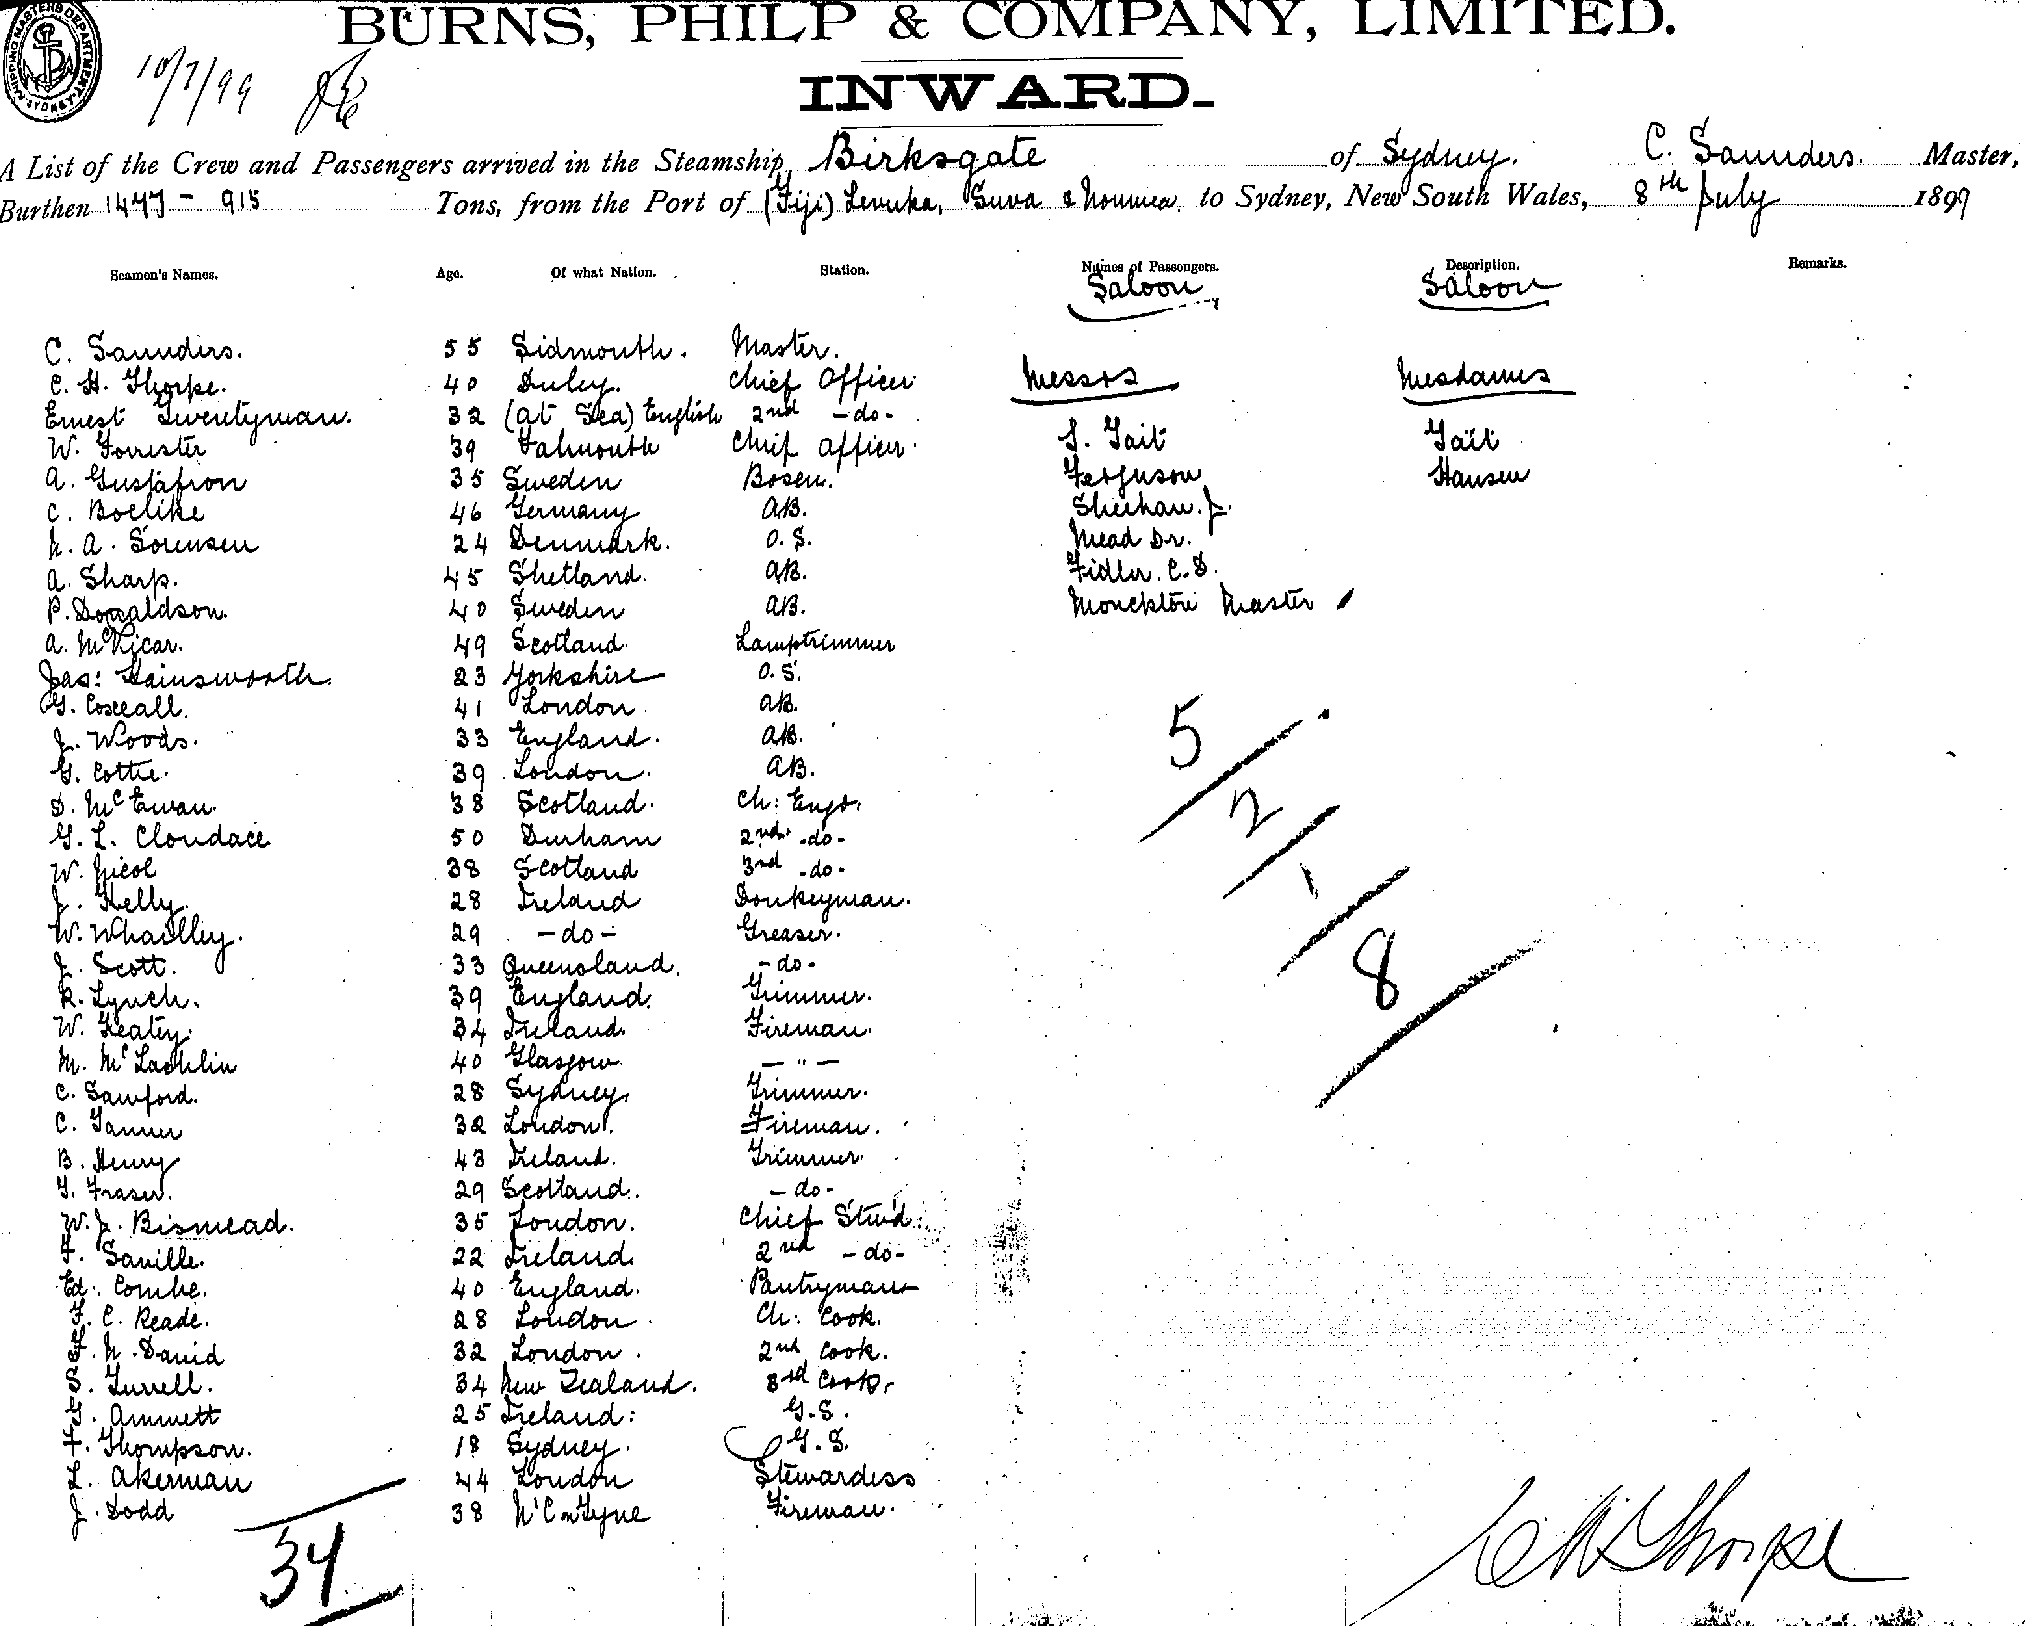 BURNS, PHILP & COMPANY, LIMITED.
10/7/99
INWARD.
A List of the Crew and Passengers arrived in the Steamship, Birksgate of Sydney. C. Saunders. Master,
Burthen 1447 - 915 Tons, from the Port of (Fiji) Levuka, Suva & Noumea to Sydney, New South Wales, 8th July 1899
Seamen's Names. Age. Of what Nation. Station. Names of Passengers. Description. Remarks.
Saloon Saloon
C. Saunders. 55 Sidmouth. Master.
C. H. Thorpe. 40 Chief Officer Messrs Mesdames
Ernest Twentyman. 32 (at Sea) English 2nd -do-
W. Forrester 39 Falmouth Chief Officer. S. Tait Tait
A. Gustafson 35 Sweden Bosen. Ferguson Hansen
C. Boelike 46 Germany AB. Sheehan. J.
N. A. Sorensen 24 Denmark. O. S. Mead Dr.
A. Sharp. 45 Shetland. AB. Fidler. C. D.
P. Donaldson. 40 Sweden AB. Monckton Master
A. McVicar. 49 Scotland Lamptrimmer
Jas: Hainsworth. 23 Yorkshire O. S.
G. 41 London AB.
J. Woods. 33 England. AB.
G. Cottie. 39 London. AB.
D. McEwan. 38 Scotland. Ch: Engr.
G. L. Cloudace 50 Durham 2nd -do-
W. Nicol 38 Scotland 3rd -do-
J. Kelly. 28 Ireland Donkeyman.
W. Whadley. 29 -do- Greaser.
J. Scott. 33 Queensland. -do-
R. Lynch. 39 England. Trimmer.
W. Keaty. 34 Ireland. Fireman.
M. McLachlin 40 Glasgow. - " -
C. Sawford. 28 Sydney. Trimmer.
C. Tanner 32 London. Fireman.
B. Henry 43 Ireland. Trimmer
T. Fraser. 29 Scotland. -do-
W. J. Bismead. 35 London. Chief Stwd.
F. Saville. 22 Ireland. 2nd -do-
Ed: Combe. 40 England. Pantryman
F. C. Reade. 28 London. Ch: Cook.
F. N. David 32 London. 2nd Cook.
S. Turrell. 34 New Zealand. 3rd Cook.
G. Ammett 25 Ireland: G. S.
F. Thompson. 18 Sydney. G. S.
L. Akerman 44 London Stewardess
J. Dodd 38 N'C on Tyne Fireman.
5
2
1
8
34
C H Thorpe